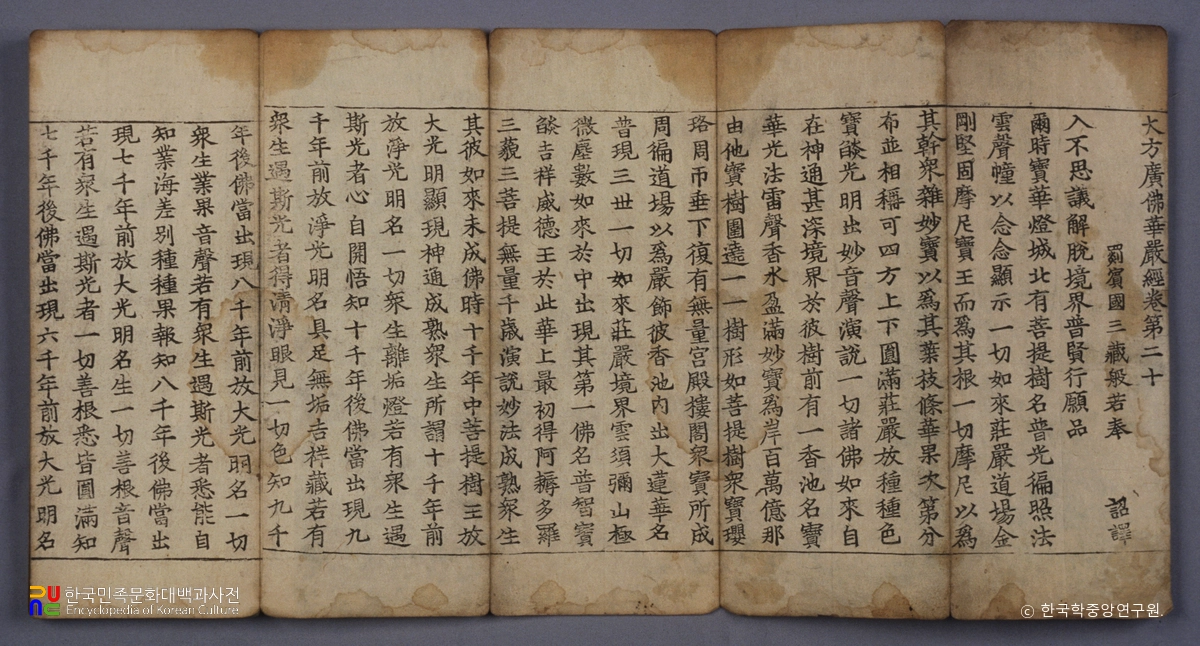 大方廣佛華嚴經卷第二十
罽賓國三藏般若奉 詔譯
入不思議解脫境界普賢行願品
爾時寶華燈城北有菩提樹名普光徧照法
雲聲幢以念念顯示一切如來莊嚴道場金
剛堅固摩尼寶王而爲其根一切摩尼以爲
其幹衆雜妙寶以爲其葉枝條華果次第分
布並相稱可四方上下圓滿莊嚴放種種色
寶燄光明出妙音聲演說一切諸佛如來自
在神通甚深境界於彼樹前有一香池名寶
華光法雷聲香水盈滿妙寶爲岸百萬億那
由他寶樹圍遶一一樹形如菩提樹衆寶瓔
珞周帀垂下復有無量宮殿樓閣衆寶所成
周徧道場以爲嚴飾彼香池內出大蓮華名
普現三世一切如來莊嚴境界雲須彌山極
微塵數如來於中出現其第一佛名普智寶
燄吉祥威德王於此華上最初得阿耨多羅
三藐三菩提無量千歲演說妙法成熟衆生
其彼如來未成佛時十千年中菩提樹王放
大光明顯現神通成熟衆生所謂十千年前
放淨光明名一切衆生離垢燈若有衆生遇
斯光者心自開悟知十千年後佛當出現九
千年前放淨光明名具足無垢吉祥藏若有
衆生遇斯光者得清淨眼見一切色知九千
年後佛當出現八千年前放大光明名一切
衆生業果音聲若有衆生遇斯光者悉能自
知業海差別種種果報知八千年後佛當出
現七千年前放大光明名生一切善根音聲
若有衆生遇斯光者一切善根悉皆圓滿知
七千年後佛當出現六千年前放大光明名
한국민족문화대백과사전
Encyclopedia of Korean Culture
© 한국학중앙연구원.